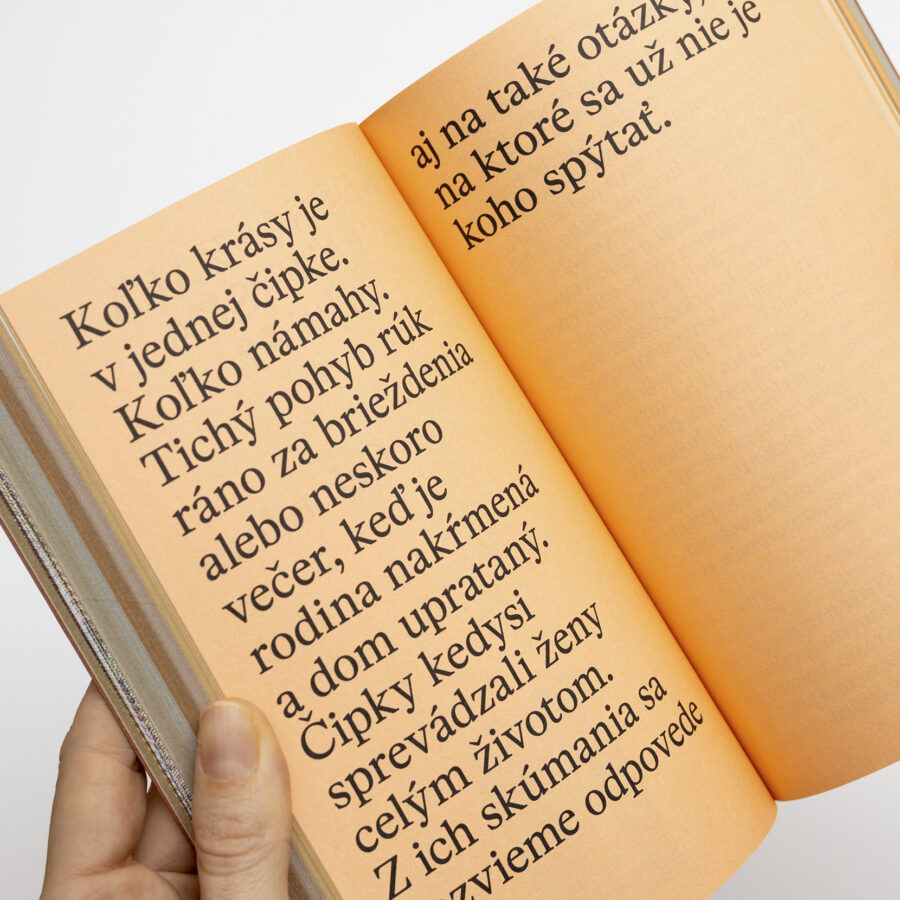 Koľko krásy je
v jednej čipke.
Koľko námahy.
Tichý pohyb rúk
ráno za brieždenia
alebo neskoro
večer, keď je
rodina nakŕmená
a dom uprataný.
Čipky kedysi
sprevádzali ženy
celým životom.
Z ich skúmania sa
odpovede
aj na také otázky,
na ktoré sa už nie je
koho spýtať.